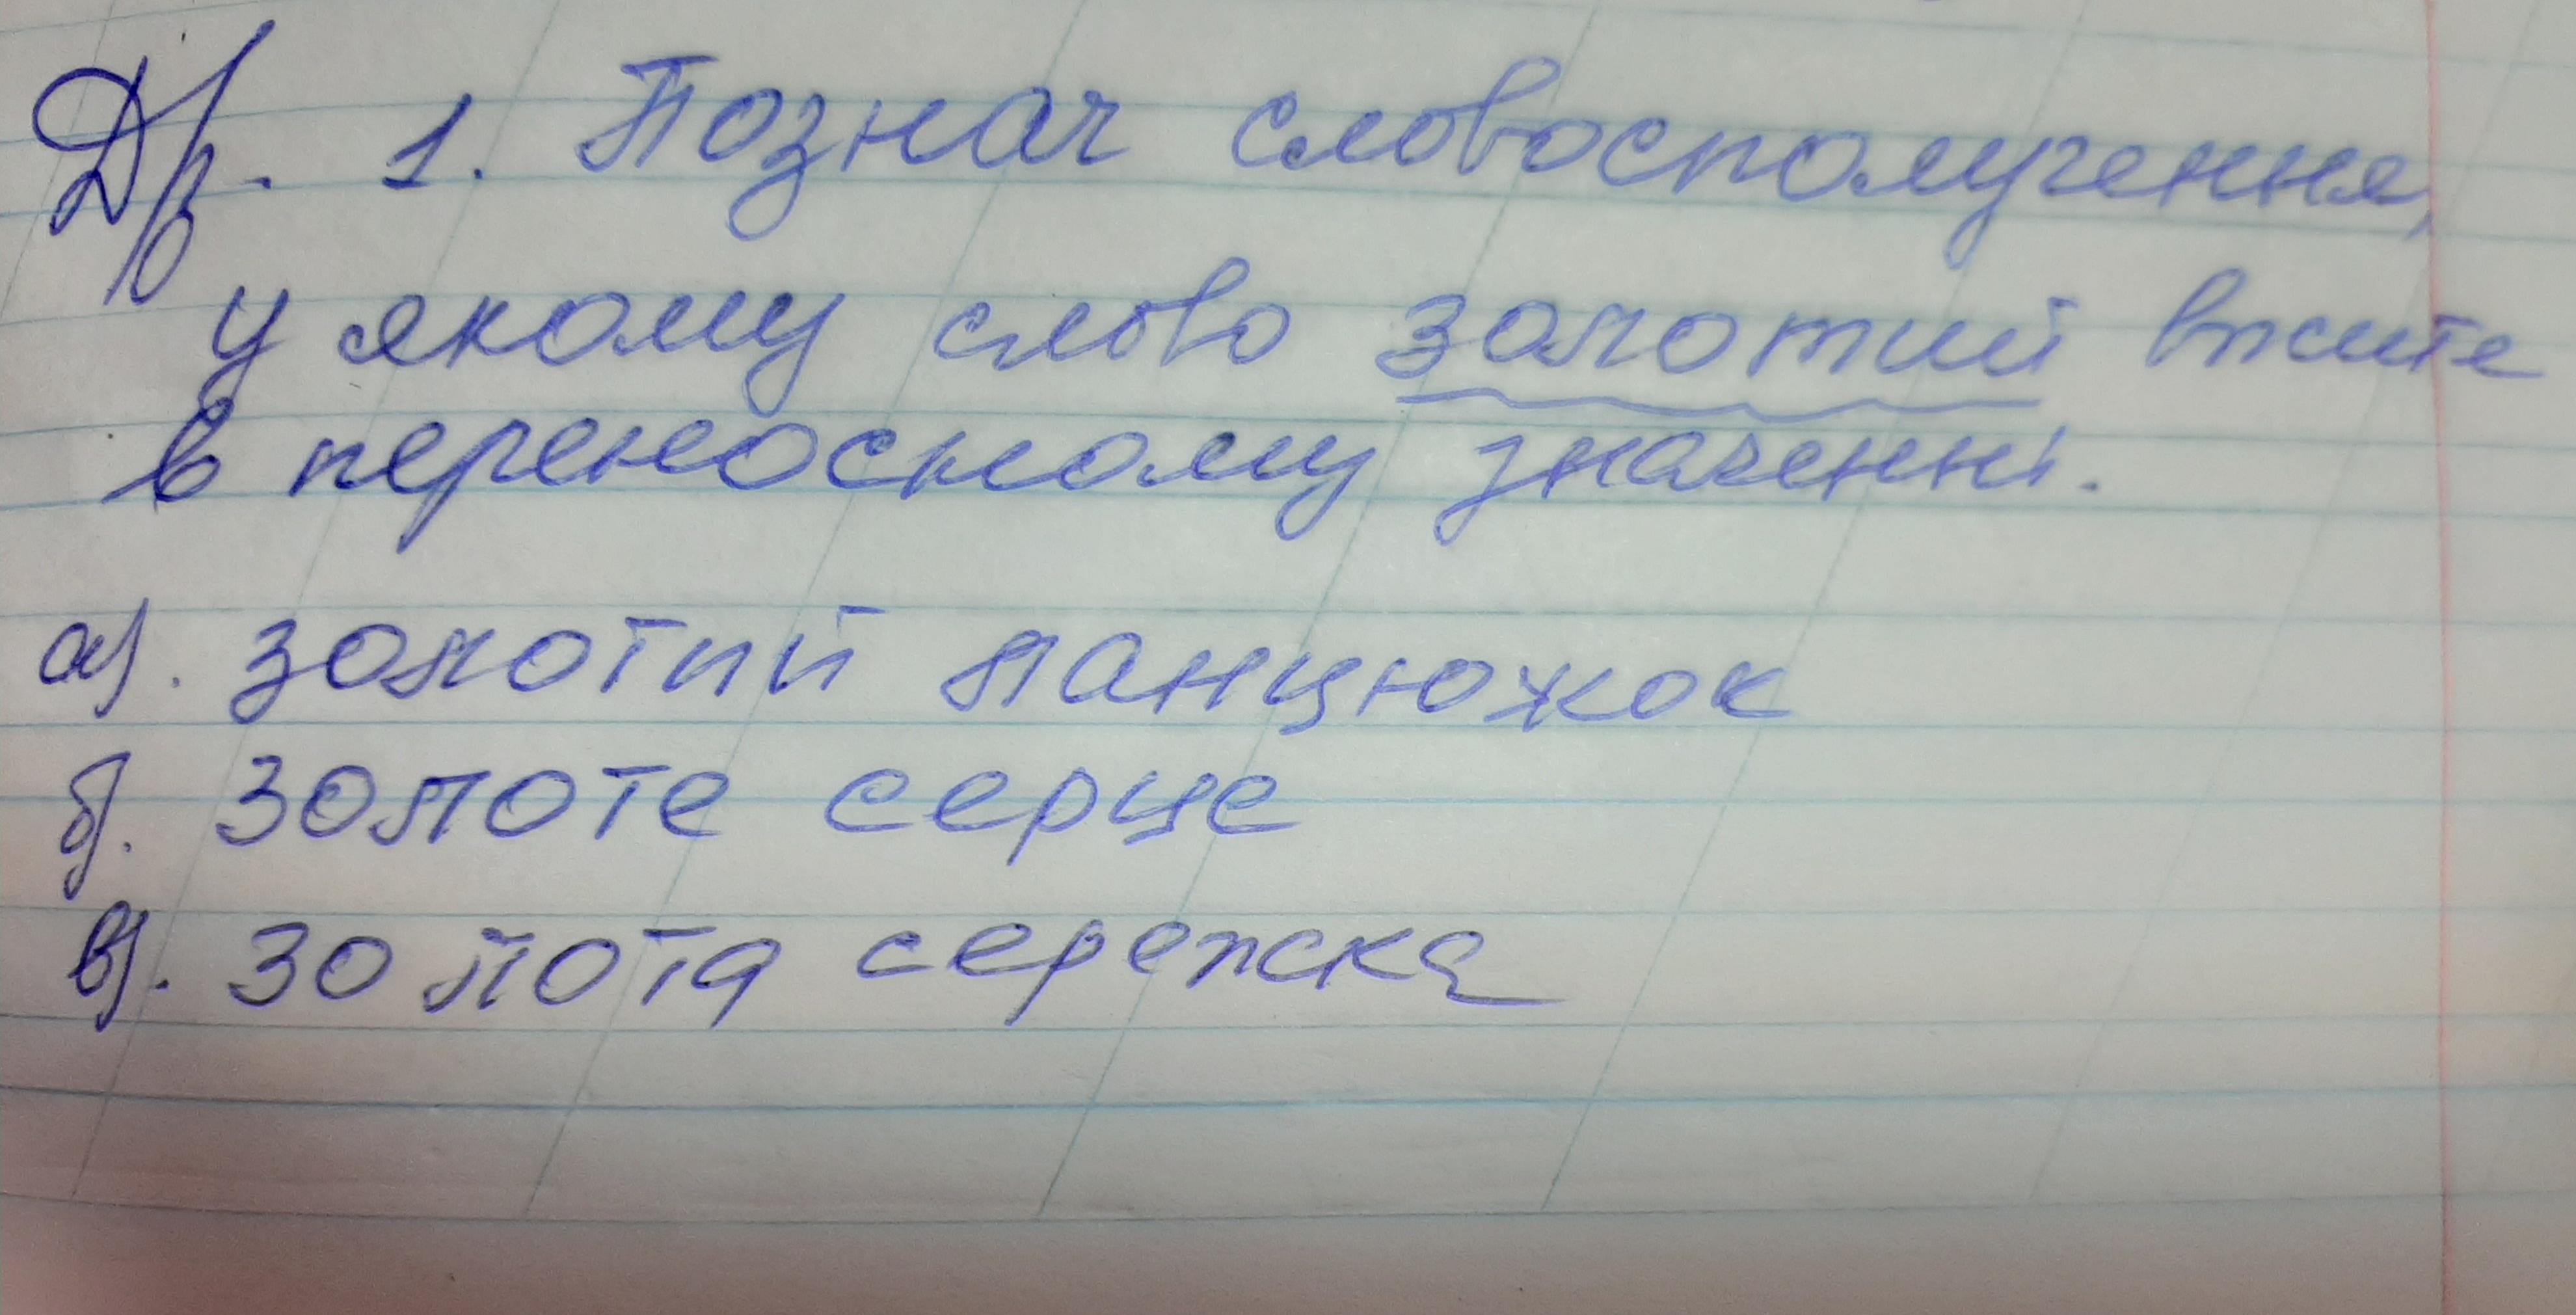 Др. 1. Познач словосполучення,
у якому слово золотий вжите
в переносному значенні.
а). золотий ланцюжок
б). золоте серце
в). золота сережка